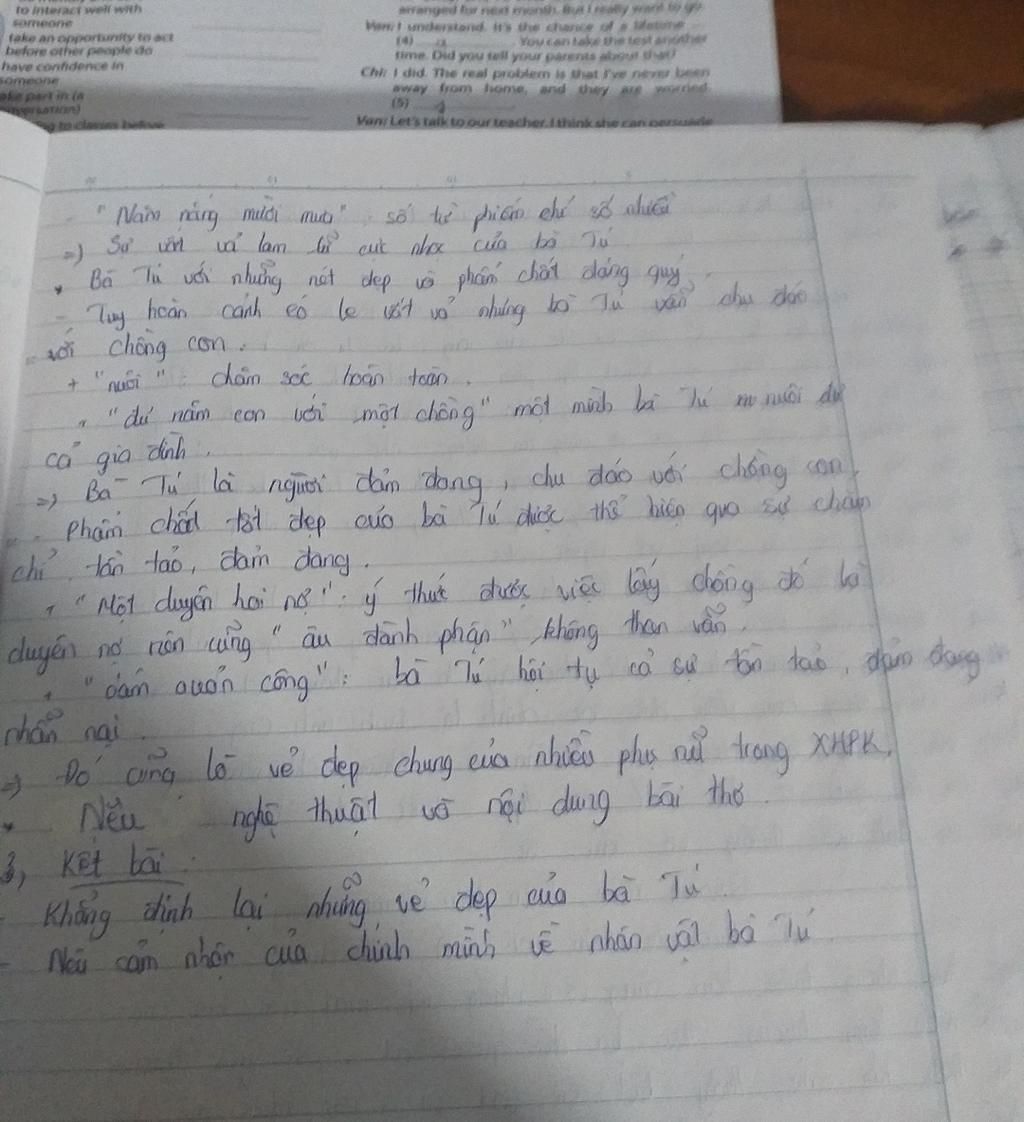 to interact well with
someone
take an opportunity to act
before other people do
have confidence in
someone
take part in (a
conversation)
arranged for next month. But I really want to go.
Van: I understand. It's the chance of a lifetime.
(4) You can take the test another
time. Did you tell your parents about that?
Chi: I did. The real problem is that I've never been
away from home, and they are worried.
(5)
Van: Let's talk to our teacher. I think she can persuade
"Năm nắng mười mưa": số từ phiếm chỉ số nhiều
=> Sự vất vả lam lũ cực nhọc của bà Tú
* Bà Tú với những nét đẹp và phẩm chất đáng quý
- Tuy hoàn cảnh éo le vất vả nhưng bà Tú vẫn chu đáo
với chồng con.
+ "nuôi": chăm sóc hoàn toàn.
+ "đủ năm con với một chồng" một mình bà Tú nuôi đủ
cả gia đình.
=> Bà Tú là người đảm đang, chu đáo với chồng con.
- Phẩm chất tốt đẹp của bà Tú được thể hiện qua sự chăm
chỉ, tần tảo, đảm đang.
+ "Một duyên hai nợ": ý thức được việc lấy chồng đó là
duyên nợ nên cũng "âu đành phận", không than vãn.
+ "dám quản công": bà Tú hội tụ cả sự tần tảo, đảm đang
nhẫn nại.
=> Đó cũng là vẻ đẹp chung của nhiều phụ nữ trong XHPK.
* Nêu nghệ thuật và nội dung bài thơ.
3, Kết bài:
- Khẳng định lại những vẻ đẹp của bà Tú
- Nêu cảm nhận của chính mình về nhân vật bà Tú.